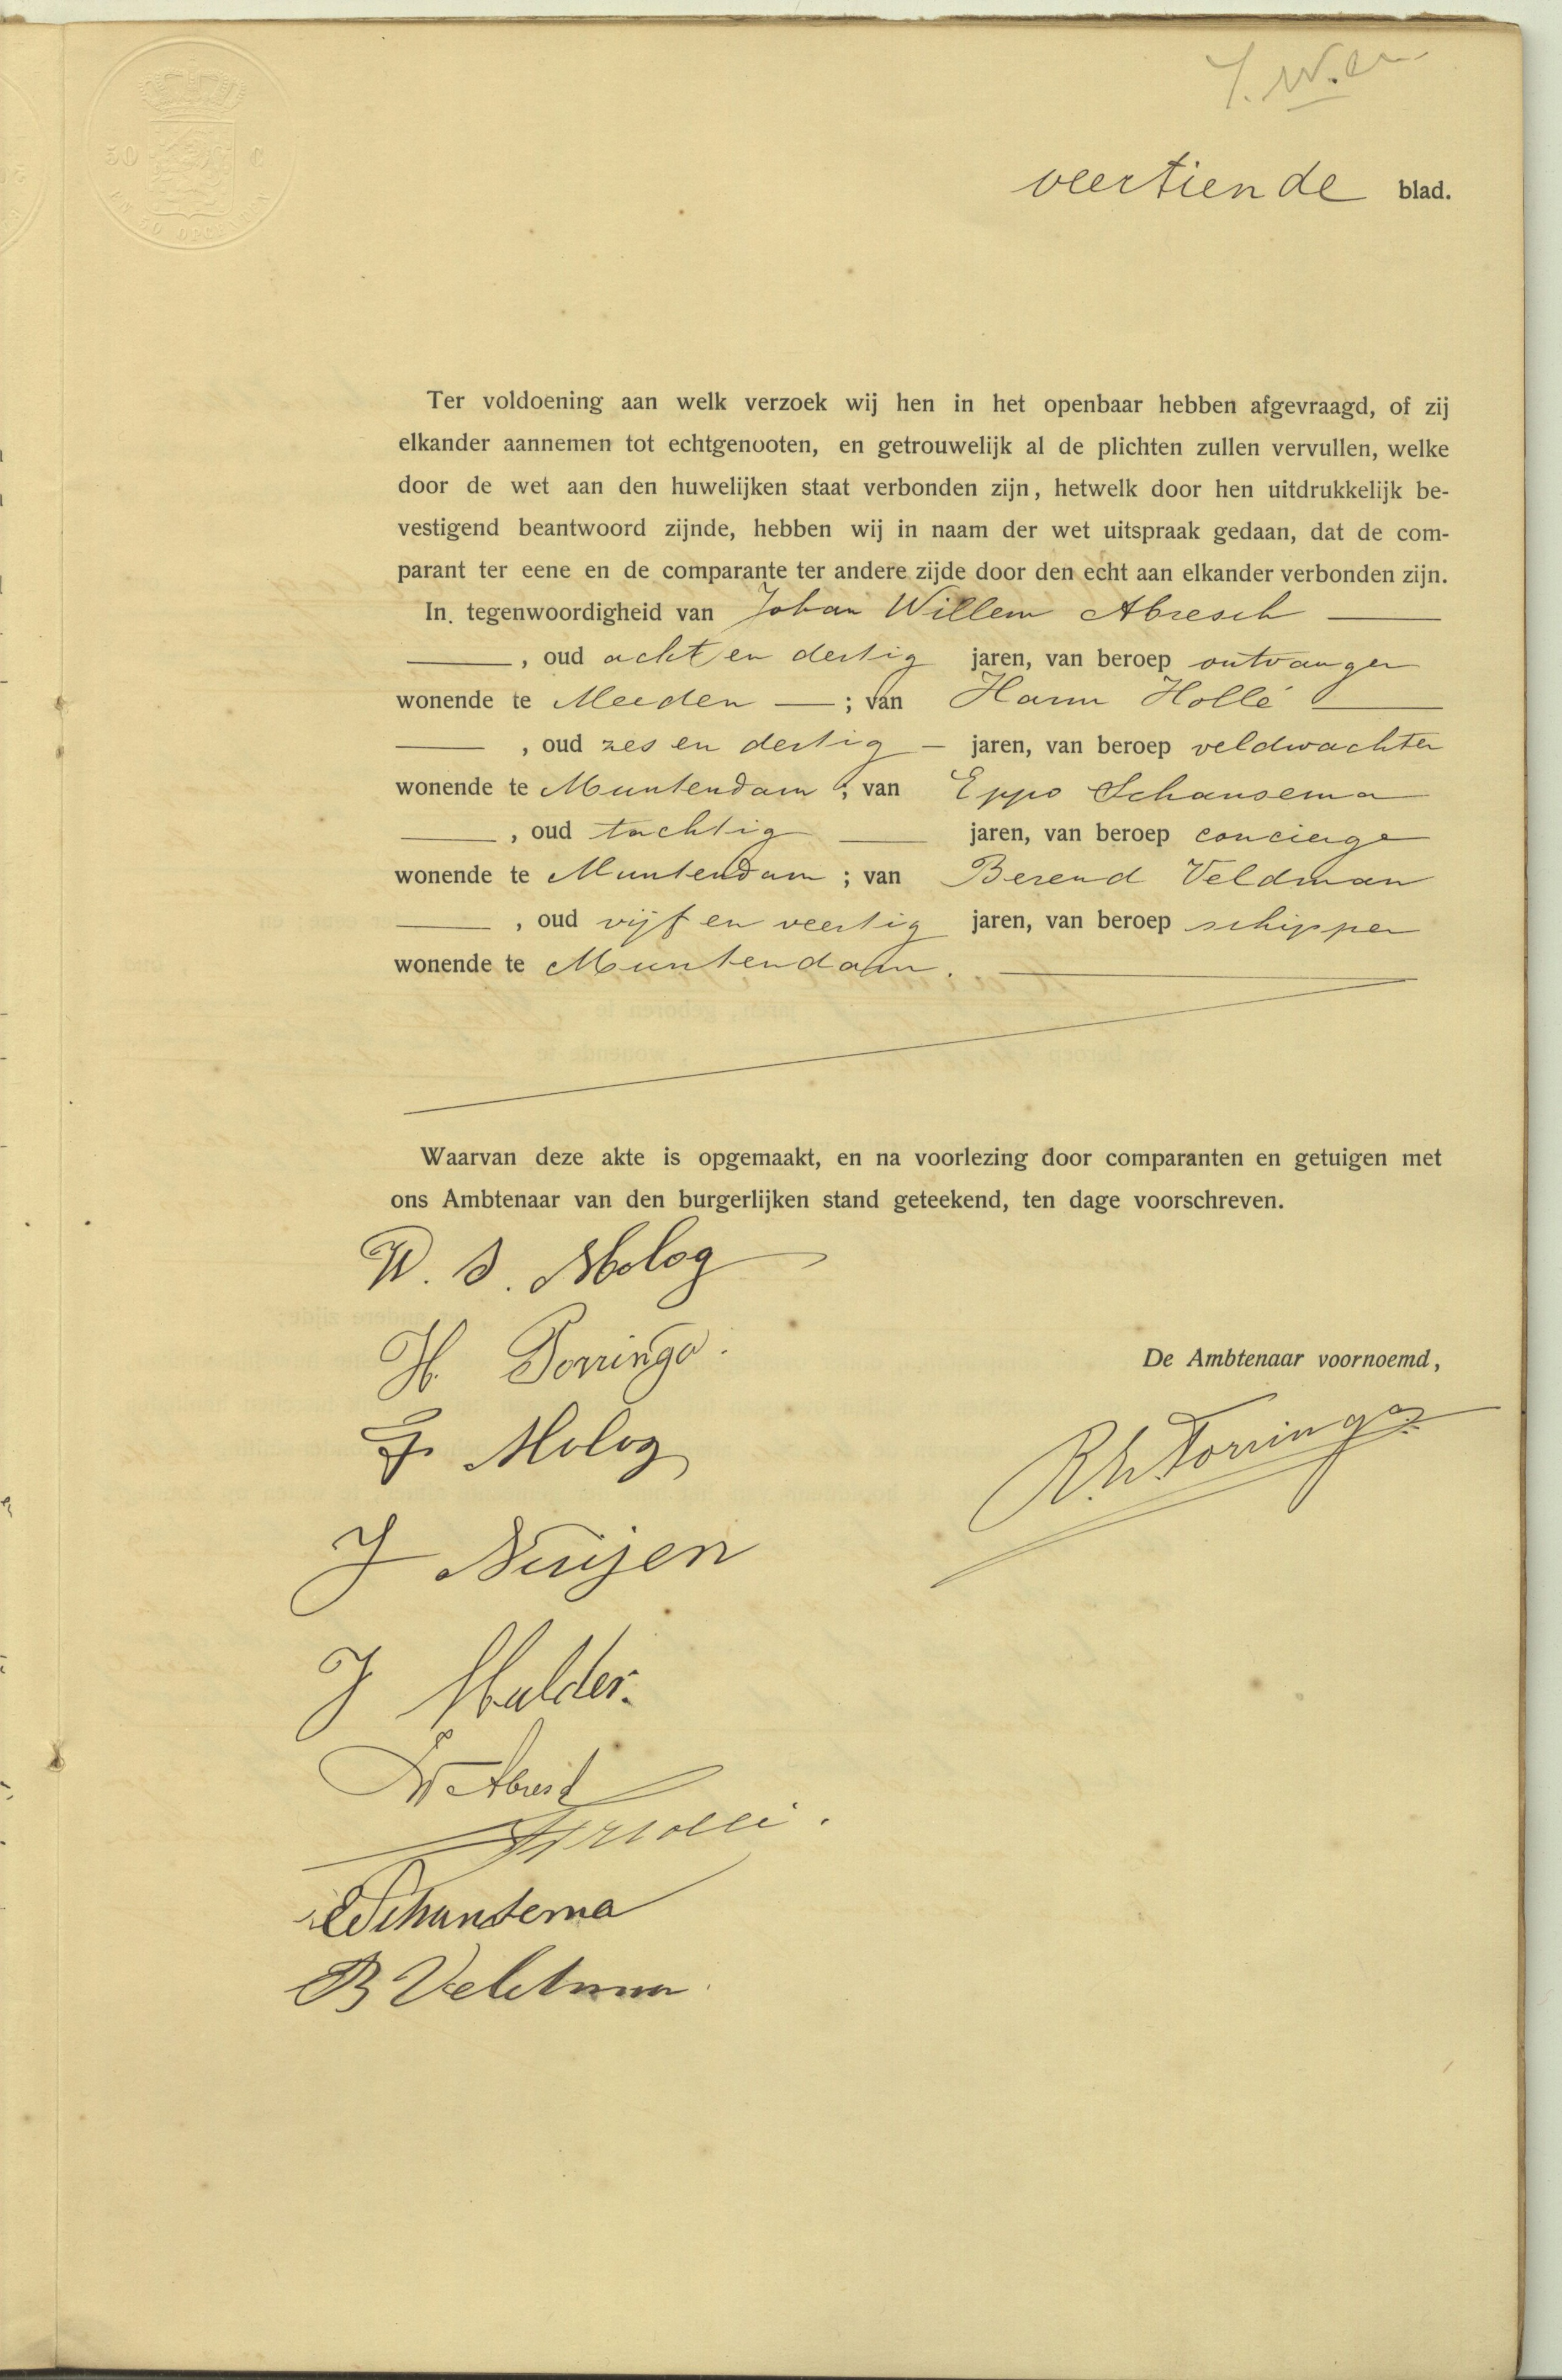 50 C
veertiende blad.
Ter voldoening aan welk verzoek wij hen in het openbaar hebben afgevraagd, of zij
elkander aannemen tot echtgenooten, en getrouwelijk al de plichten zullen vervullen, welke
door de wet aan den huwelijken staat verbonden zijn, hetwelk door hen uitdrukkelijk be-
vestigend beantwoord zijnde, hebben wij in naam der wet uitspraak gedaan, dat de com-
parant ter eene en de comparante ter andere zijde door den echt aan elkander verbonden zijn.
In tegenwoordigheid van Johan Willem Abresch
, oud acht en dertig jaren, van beroep ontvanger
wonende te Meeden ; van Harm Hollé
, oud zes en dertig jaren, van beroep veldwachter
wonende te Muntendam ; van Eppo Schansema
, oud tachtig jaren, van beroep concierge
wonende te Muntendam ; van Berend Veldman
, oud vijf en veertig jaren, van beroep schipper
wonende te Muntendam.
Waarvan deze akte is opgemaakt, en na voorlezing door comparanten en getuigen met
ons Ambtenaar van den burgerlijken stand geteekend, ten dage voorschreven.
W. S. Molog
H. Torringa.
De Ambtenaar voornoemd,
Molog
R. H. Torringa
J Nuijen
J Mulder.
JW Abresch
H Hollé.
E Schansema
B Veldman.